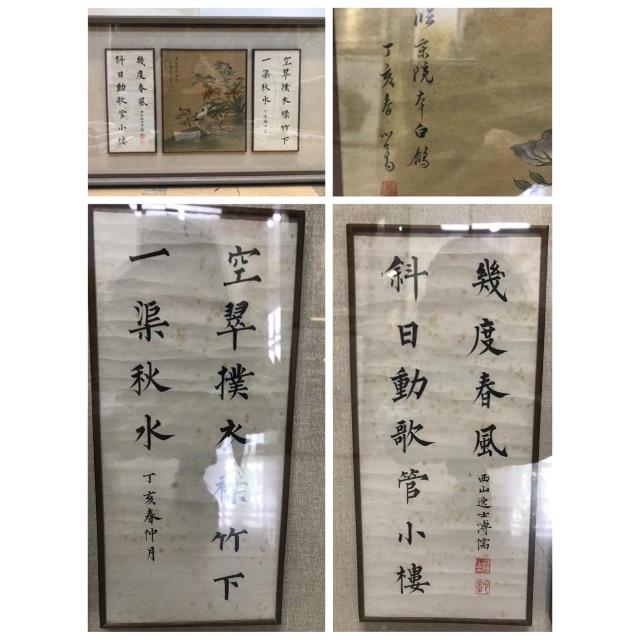 空翠撲衣襟竹下
一渠秋水
丁亥春仲月
斜日動歌管小樓
幾度春風
臨宋院本白鴿
丁亥春 心畬
空翠撲衣襟竹下
一渠秋水
丁亥春仲月
斜日動歌管小樓
幾度春風
西山逸士溥儒